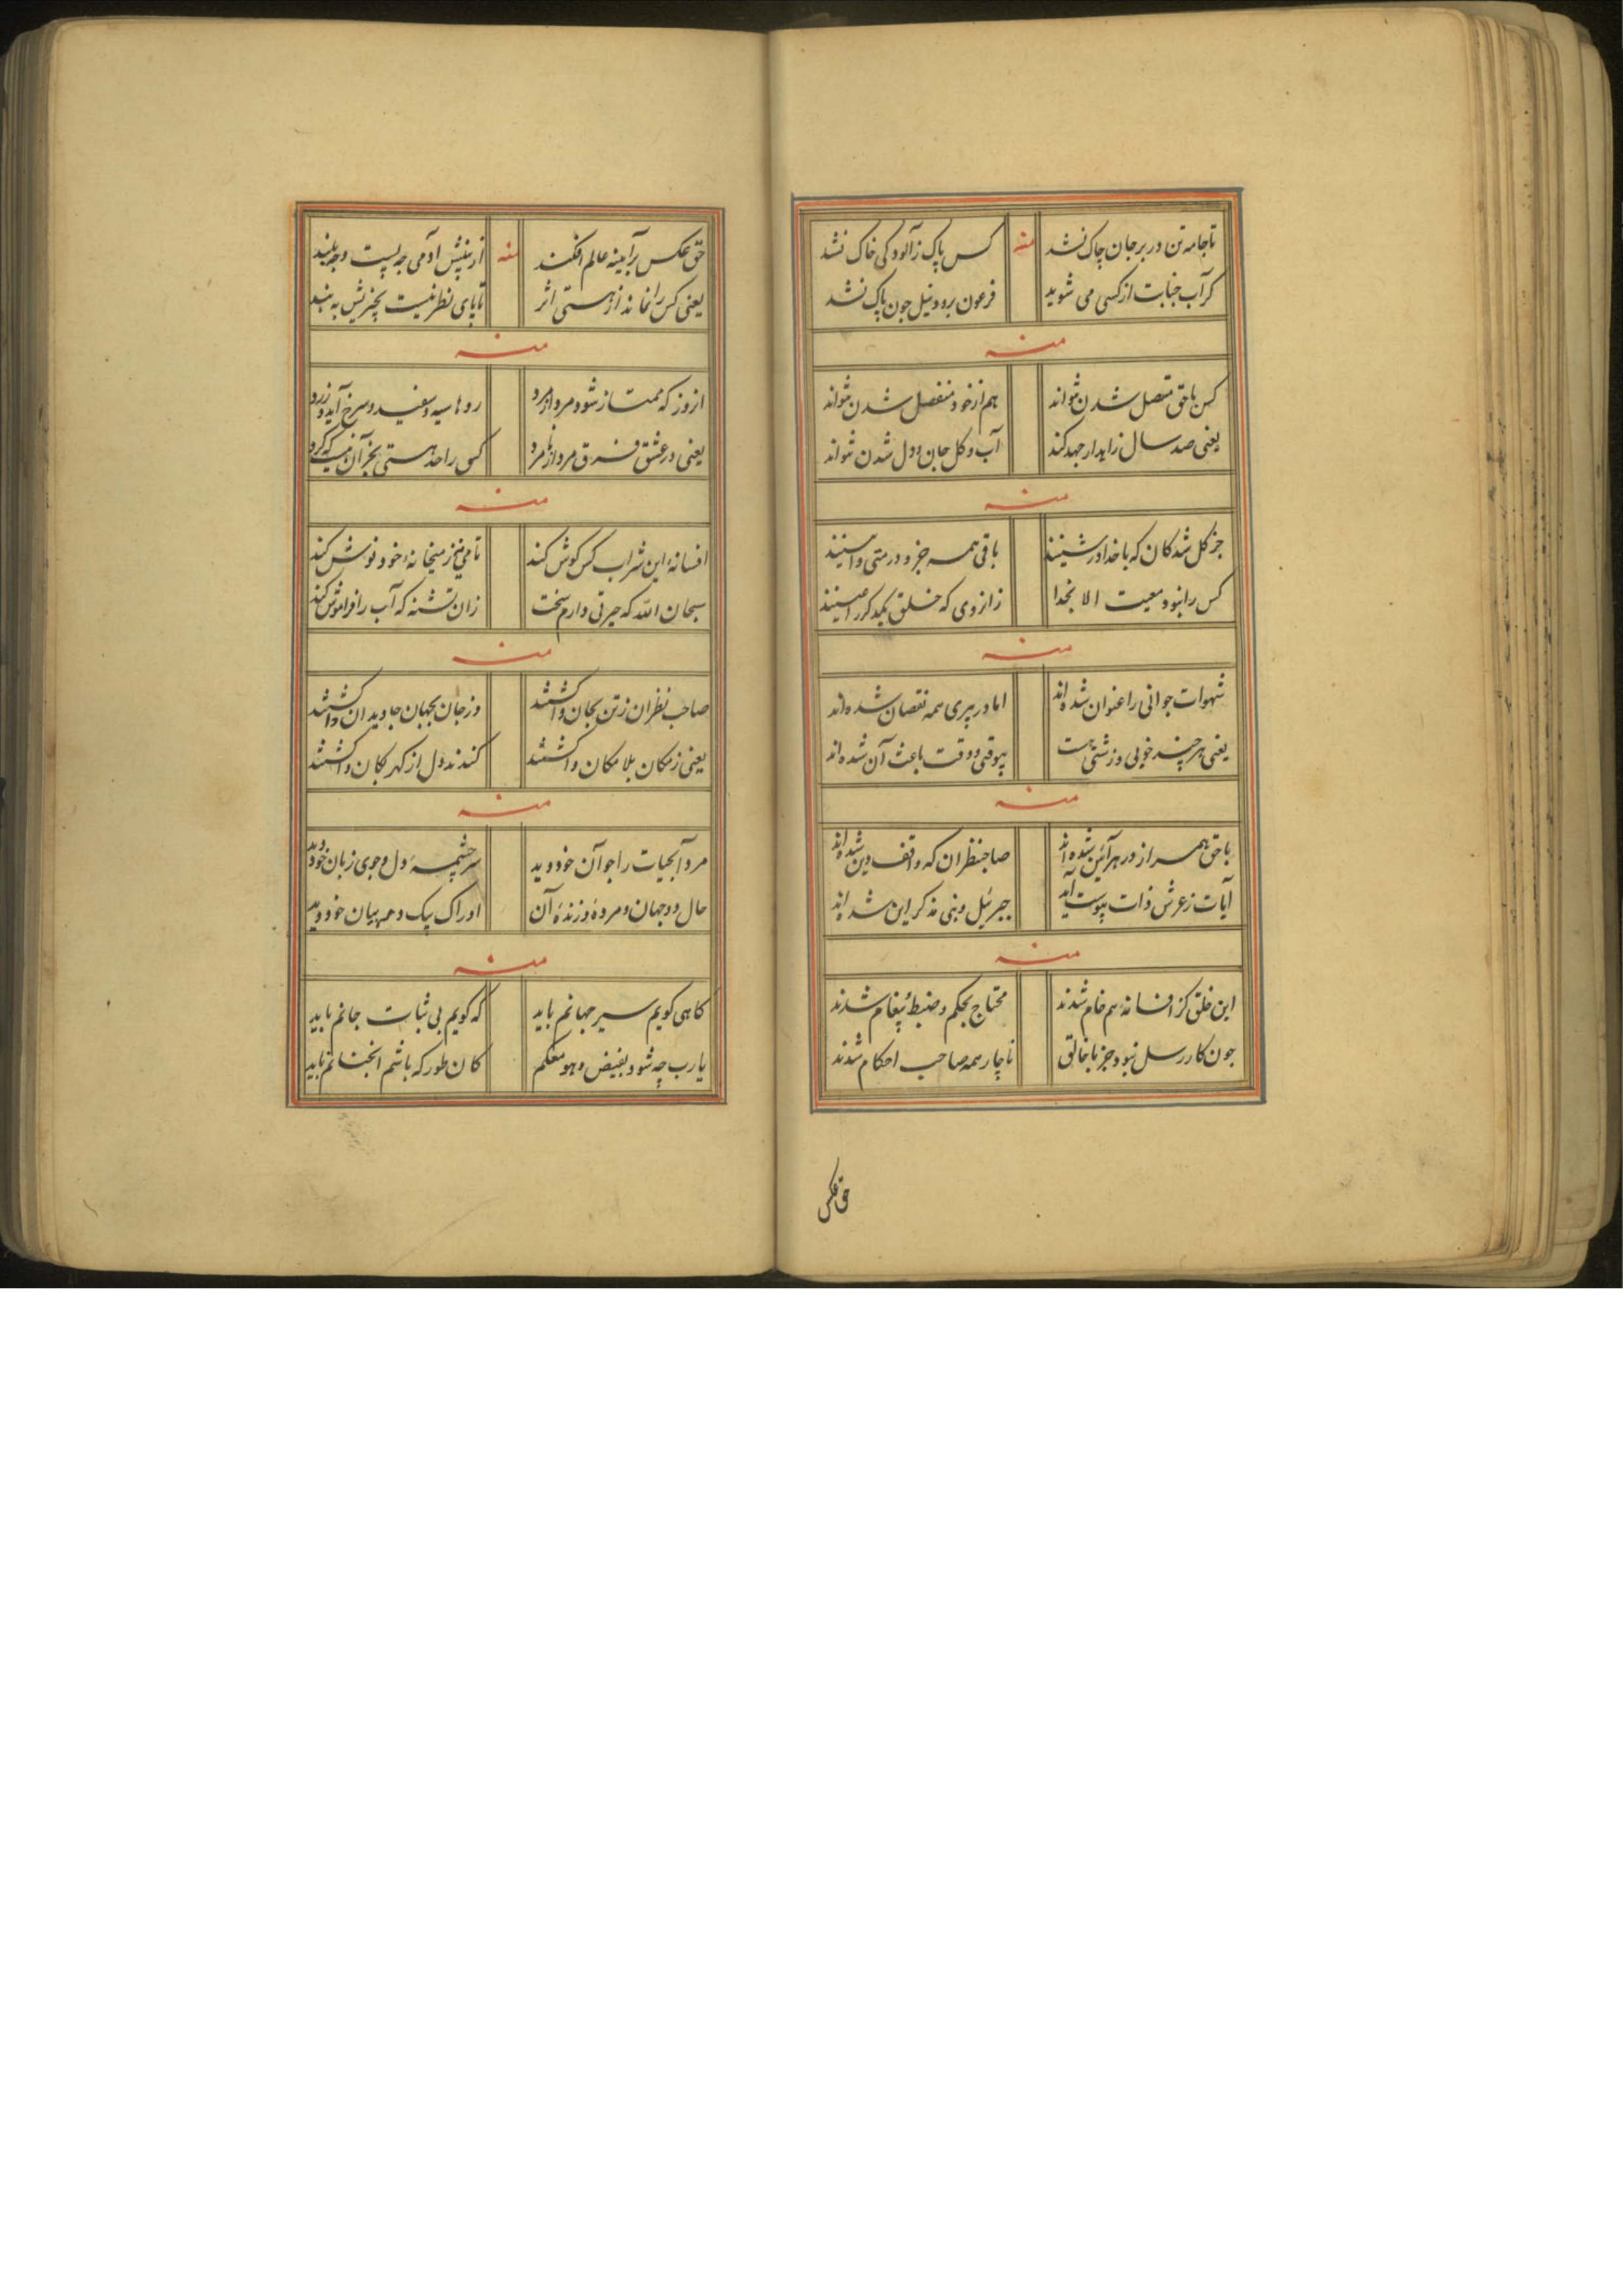 تا جامه تن در بر جان چاک نشد منه کس پاک ز آلودکی خاک نشد
کر آب جنابت از کسی می شوید فرعون برود نیل جون پاک نشد
منه
کس با حق متصل شدن نتواند هم از خود منفصل شدن نتواند
یعنی صد سال زاید ار جهد کند آب و کل جان و دل شدن نتواند
منه
جز کل شدکان که با خدا در باقی همه جزو در
کس را نبود معیت الا بخدا زانروی که خلق یکدکر را
منه
شهوات جوانی را عنوان شده‌اند اما در پیری همه نقصان شده‌اند
یعنی هر چند خوبی و زشتی هست بیوقتی و وقت باعث آن شده‌اند
منه
با حق همراز در هر آئین شده‌اند صاحبنظران که واقف دین شده‌اند
آیات ز عرش ذات پیوست آید جبرئیل و نبی مذکر این شده‌اند
منه
این خلق کز افسانه هم خام شدند محتاج بحکم و ضبط پیغام شدند
جون کار رسل نبود جز با خالق ناچار همه صاحب احکام شدند
حق عکس
حق عکس بر آیینه عالم افکند منه از بینش آدمی جه پست و جه بلند
یعنی کس را نماند از هستی اثر تا پای نظر نیست بچیزیش به بند
منه
از روز که ممتاز شود مرد از مرد روها سیه و سفید و سرخ آید و زرد
یعنی در عشق فرق مرد از نامرد کس را حد هستی بجز آن نیست که کرد
منه
افسانه این شراب کس کوش کند تا می ز میخانه خود نوش کند
سبحان الله که حیرتی دارم سخت زان تشنه که آب را فراموش کند
منه
صاحب نظران ز تن بجان واکشتند وز جان بجهان جاویدان واکشتند
یعنی ز مکان بلا مکان واکشتند کندند دل از کهر بکان واکشتند
منه
مرد آبحیات را جو آن خود دید سرچشمه دل و جوی زبان خود دید
حال دو جهان و مرده و زنده آن ادراک یک و همه بیان خود دید
منه
کاهی کویم سیر جهانم باید که کویم بی ثبات جانم باید
یا رب چه شود بفیض وهو معکم کان طور که باشم آنجنانم باید